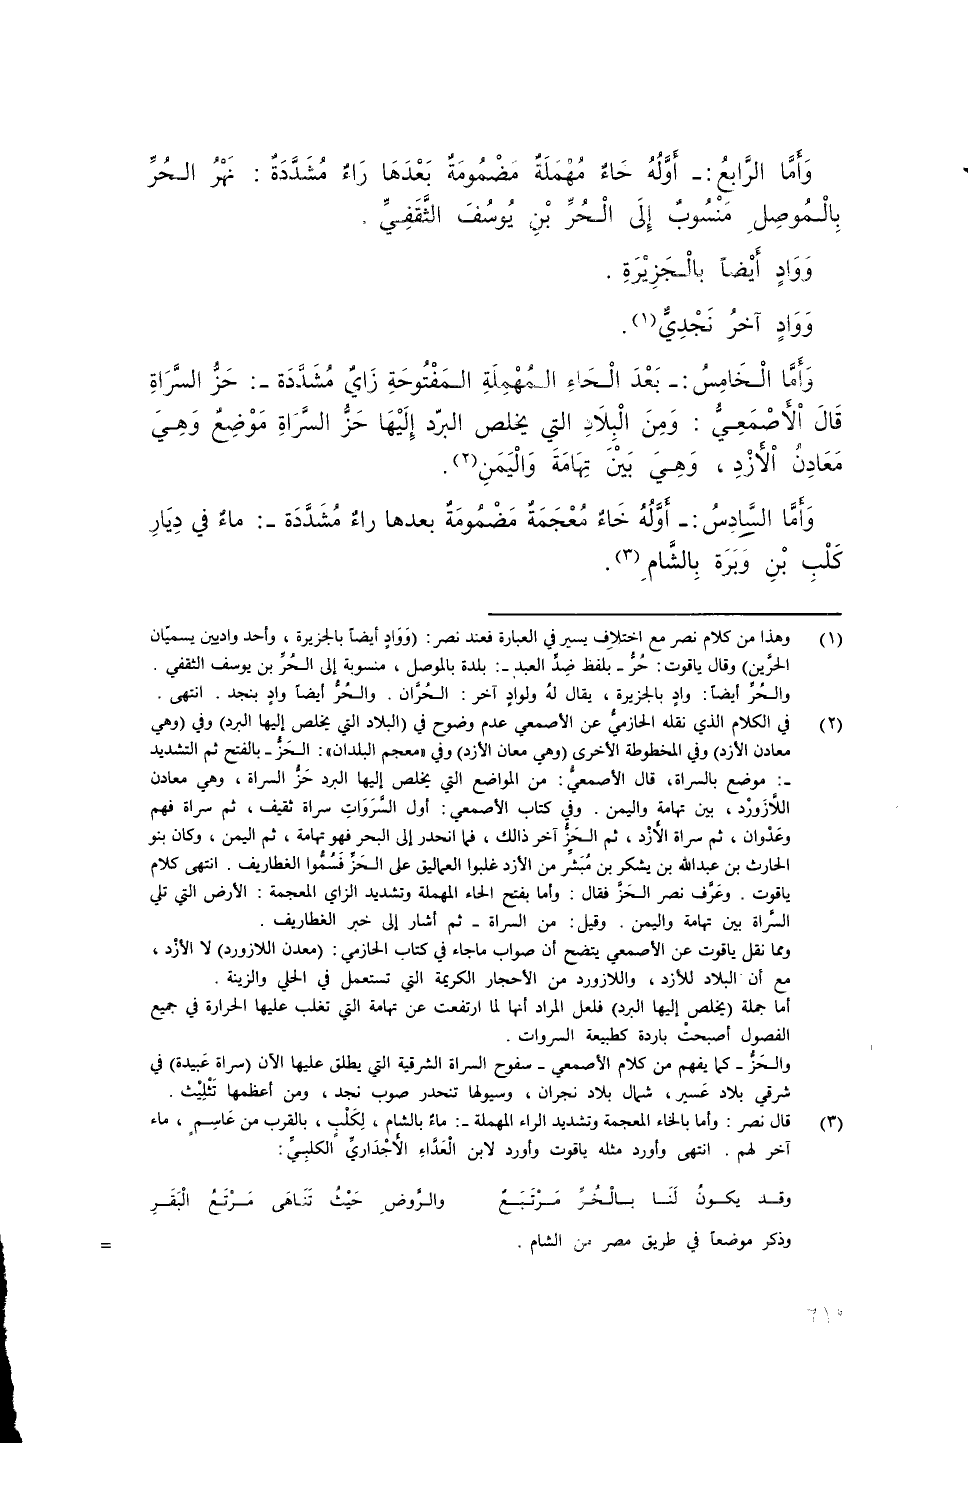 وَأَمَّا الرَّابِعُ :ـ أَوَّلُهُ حَاءٌ مُهْمَلَةٌ مَضْمُومَةٌ بَعْدَهَا رَاءٌ مُشَدَّدَةٌ : نَهْرُ الْـحُرِّ
بِالْـمُوصِلِ مَنْسُوبٌ إِلَى الْـحُرِّ بْنِ يُوسُفَ الثَّقَفِيِّ .
وَوَادٍ أَيْضاً بِالْـجَزِيْرَةِ .
وَوَادٍ آخرُ نَجْدِيٌّ(١).
وَأَمَّا الْـخَامِسُ :ـ بَعْدَ الْـحَاءِ الـمُهْمِلَةِ الـمَفْتُوحَةِ زَايٌ مُشَدَّدَة ـ: حَزُّ السَّرَاةِ
قَالَ اْلأَصْمَعِيُّ : وَمِنَ الْبِلَادِ التي يخلص البرّد إِلَيْهَا حَزُّ السَّرَاةِ مَوْضِعٌ وَهِيَ
مَعَادِنُ اْلأَزْدِ ، وَهِيَ بَيْنَ تِهَامَةَ وَالْيَمَنِ(٢).
وَأَمَّا السَّادِسُ :ـ أَوَّلُهُ خَاءٌ مُعْجَمَةٌ مَضْمُومَةٌ بعدها راءٌ مُشَدَّدَة ـ: ماءٌ في دِيَارِ
كَلْبِ بْنِ وَبَرَة بِالشَّامِ(٣).
(١) وهذا من كلام نصر مع اختلاف يسير في العبارة فعند نصر : (وَوَادٍ أيضاً بالجزيرة ، وأحد واديين يسميّان
الحرَّين) وقال ياقوت : حُرُّ ـ بلفظ ضِدِّ العبد ـ: بلدة بالموصل ، منسوبة إلى الـحُرِّ بن يوسف الثقفي .
والـحُرِّ أيضاً: وادٍ بالجزيرة ، يقال لهُ ولوادٍ آخر : الـحُرَّان . والـحُرُّ أيضاً وادٍ بنجد . انتهى .
(٢) في الكلام الذي نقله الحازميُّ عن الأصمعي عدم وضوح في (البلاد التي يخلص إليها البرد) وفي (وهي
معادن الأزد) وفي المخطوطة الأخرى (وهي معان الأزد) وفي «معجم البلدان»: الـحَزُّ ـ بالفتح ثم التشديد
ـ: موضع بالسراة، قال الأصمعيُّ: من المواضع التي يخلص إليها البرد حَزُّ السراة ، وهي معادن
اللَّازورْد ، بين تهامة واليمن . وفي كتاب الأصمعي: أول السَّرَوَاتِ سراة ثقيف ، ثم سراة فهم
وعَدْوان ، ثم سراة الأَزْد ، ثم الـحَزُّ آخر ذالك ، فما انحدر إلى البحر فهو تهامة ، ثم اليمن ، وكان بنو
الحارث بن عبدالله بن يشكر بن مُبَشِّر من الأزد غلبوا العماليق على الـحَزِّ فَسُمُّوا الغطاريف . انتهى كلام
ياقوت . وعَرَّف نصر الـحَزَّ فقال : وأما بفتح الحاء المهملة وتشديد الزاي المعجمة : الأرض التي تلي
السَّراة بين تهامة واليمن . وقيل: من السراة ـ ثم أشار إلى خبر الغطاريف .
ومما نقل ياقوت عن الأصمعي يتضح أن صواب ماجاء في كتاب الحازمي: (معدن اللازورد) لا الأَزْد ،
مع أن البلاد للأزد ، واللازورد من الأحجار الكريمة التي تستعمل في الحلي والزينة .
أما جملة (يخلص إليها البرد) فلعل المراد أنها لما ارتفعت عن تهامة التي تغلب عليها الحرارة في جميع
الفصول أصبحتْ باردة كطبيعة السروات .
والـحَزُّ ـ كما يفهم من كلام الأصمعي ـ سفوح السراة الشرقية التي يطلق عليها الآن (سراة عَبِيدة) في
شرقي بلاد عَسير ، شمال بلاد نجران ، وسيولها تنحدر صوب نجد ، ومن أعظمها تَثْلِيْث .
(٣) قال نصر : وأما بالخاء المعجمة وتشديد الراء المهملة ـ: ماءٌ بالشام ، لِكَلْبٍ ، بالقرب من عَاسِمٍ ، ماء
آخر لهم . انتهى وأورد مثله ياقوت وأورد لابن الْعَدَّاءِ اْلأَجْدَاريِّ الكلبِيِّ:
وقـد يكـونُ لَنَـا بـالْـخُرِّ مَـرْتَـبَـعٌ والـرَّوض حَيْثُ تَنَاهَى مَـرْتَـعُ الْبَقَـرِ
وذكر موضعاً في طريق مصر من الشام .
=
٦١٥